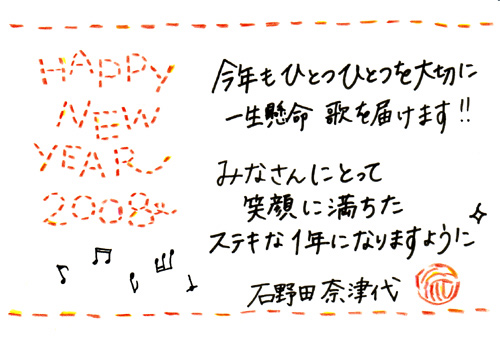 HAPPY
NEW
YEAR
2008
今年もひとつひとつを大切に
一生懸命 歌を届けます!!
みなさんにとって
笑顔に満ちた
ステキな1年になりますように
石野田奈津代